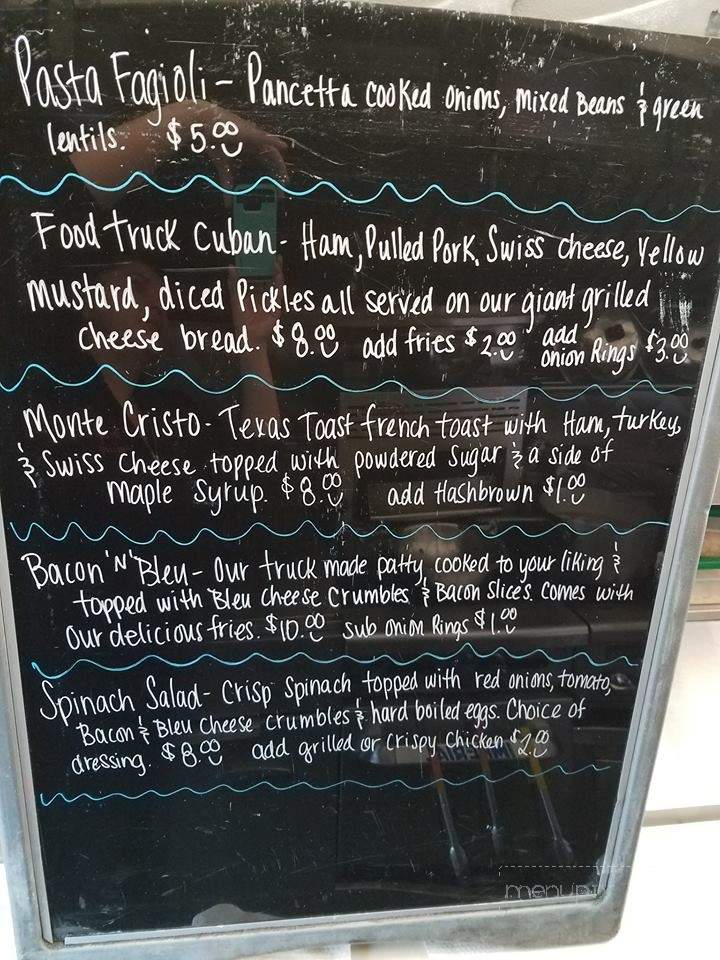 Pasta Fagioli - Pancetta cooked onions, mixed Beans & green
lentils. $5.00
Food truck Cuban - Ham, Pulled Pork, Swiss cheese, Yellow
mustard, diced Pickles all served on our giant grilled
cheese bread. $8.00 add fries $2.00 add onion Rings $3.00
Monte Cristo - Texas Toast french toast with Ham, turkey,
& Swiss Cheese topped with powdered Sugar & a side of
Maple Syrup. $8.00 add Hashbrown $1.00
Bacon 'N' Bleu - Our truck made patty cooked to your liking &
topped with Bleu Cheese Crumbles & Bacon Slices. Comes with
our delicious fries. $10.00 sub onion Rings $1.00
Spinach Salad - Crisp Spinach topped with red onions, tomato,
Bacon & Bleu Cheese Crumbles & hard boiled eggs. Choice of
dressing. $8.00 add grilled or Crispy Chicken $2.00